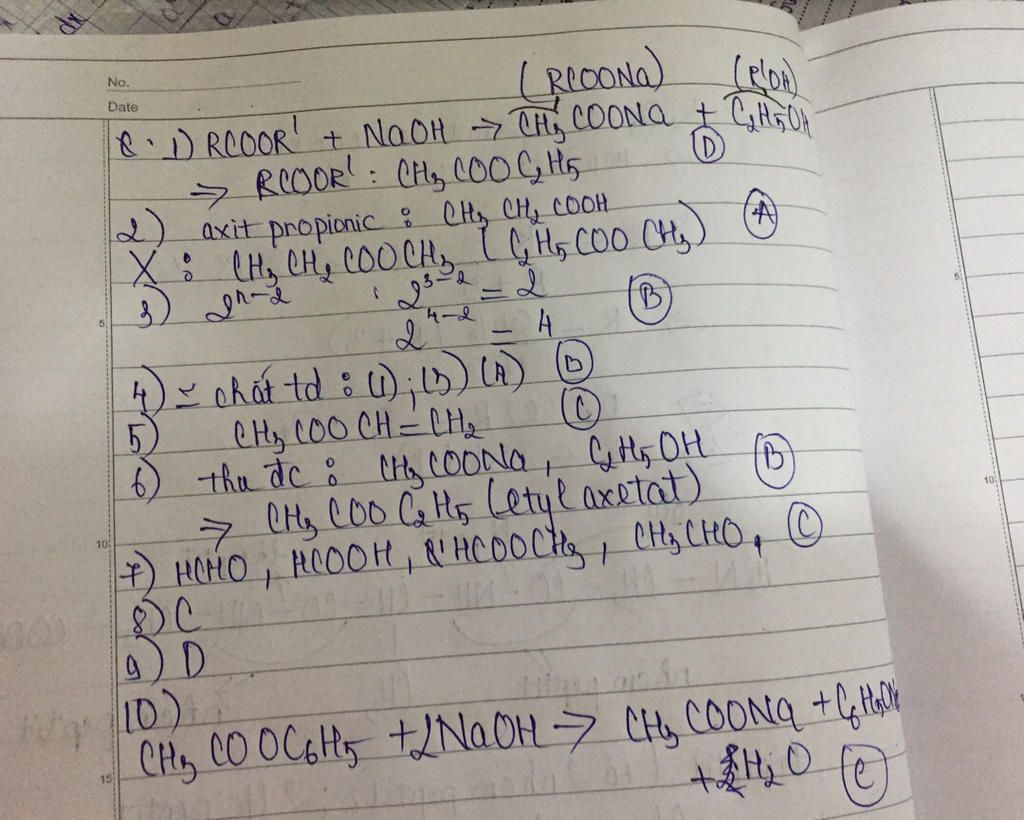 No.
Date
(RCOONa) (R'OH)
C. 1) RCOOR' + NaOH → CH3COONa + C2H5OH
⇒ RCOOR' : CH3COOC2H5 (D)
2) axit propionic : CH3CH2COOH (A)
X : CH3CH2COOCH3 (C2H5COOCH3)
3) 2^n-2 2^3-2 = 2 (B)
2^4-2 = 4
4) chất td : (1) ; (3) (4) (D)
5) CH3COOCH=CH2 (C)
6) thu đc : CH3COONa, C2H5OH (B)
⇒ CH3COOC2H5 (etyl axetat)
7) HCHO, HCOOH, HCOOCH3, CH3CHO. (C)
8) C
9) D
10)
CH3COOC6H5 + 2NaOH → CH3COONa + C6H5ONa
+ H2O (C)
5
10
15
5
10